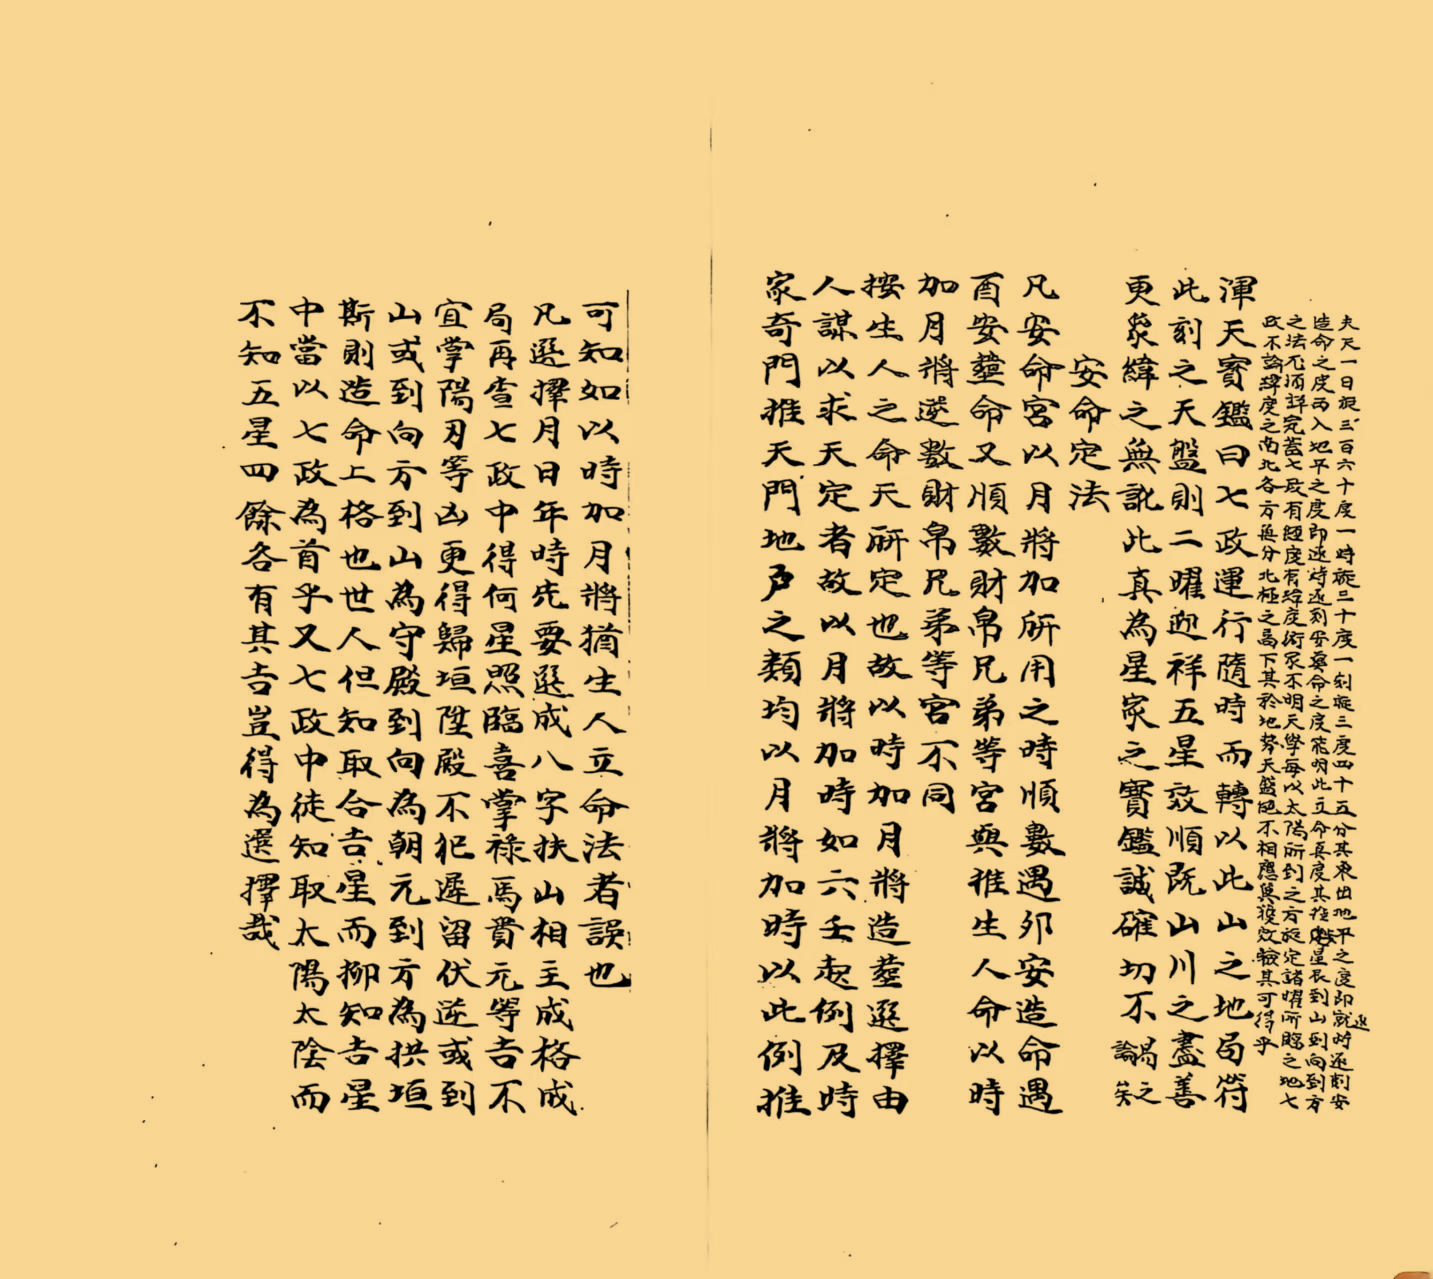 夫天一日旋三百六十度一時旋三十度一刻旋三度四十五分其東出地平之度即就時逐刻安
造命之度西入地平之度即逐時逐刻安塟命之度能明此立命真度其從逐星辰到山到向到方
之法不須詳究蓋七政有經度有緯度術家不明天學每以太陽所到之方旋定諸曜所臨之地七
政不論緯度之南北各方無分北極之高下其於地勢天盤絕不相應與獲效驗其可得乎
渾天寳鑑曰七政運行隨時而轉以此山之地局符
此刻之天盤則二曜迎祥五星効順旣山川之盡善
更衆緯之無訛此真為星家之寳鑑誠確切不易之
論矣
安命定法
凡安命宮以月将加所用之時順數遇夘安造命遇
酉安塟命又順數財帛兄弟等宮與推生人命以時
加月将逆數財帛兄弟等宮不同
按生人之命天所定也故以時加月將造塟選擇由
人謀以求天定者故以月將加時如六壬起例及時
家奇門推天門地户之類均以月將加時以此例推
可知如以時加月將猶生人立命法者誤也
凡選擇月日年時先要選成八字扶山相主成格成
局再查七政中得何星照臨喜掌祿馬貴元等吉不
宜掌陽刃等凶更得歸垣陞殿不犯遲留伏逆或到
山或到向方到山為守殿到向為朝元到方為拱垣
斯則造命上格也世人但知取合吉星而抑知吉星
中當以七政為首乎又七政中徒知取太陽太陰而
不知五星四餘各有其吉豈得為選擇哉